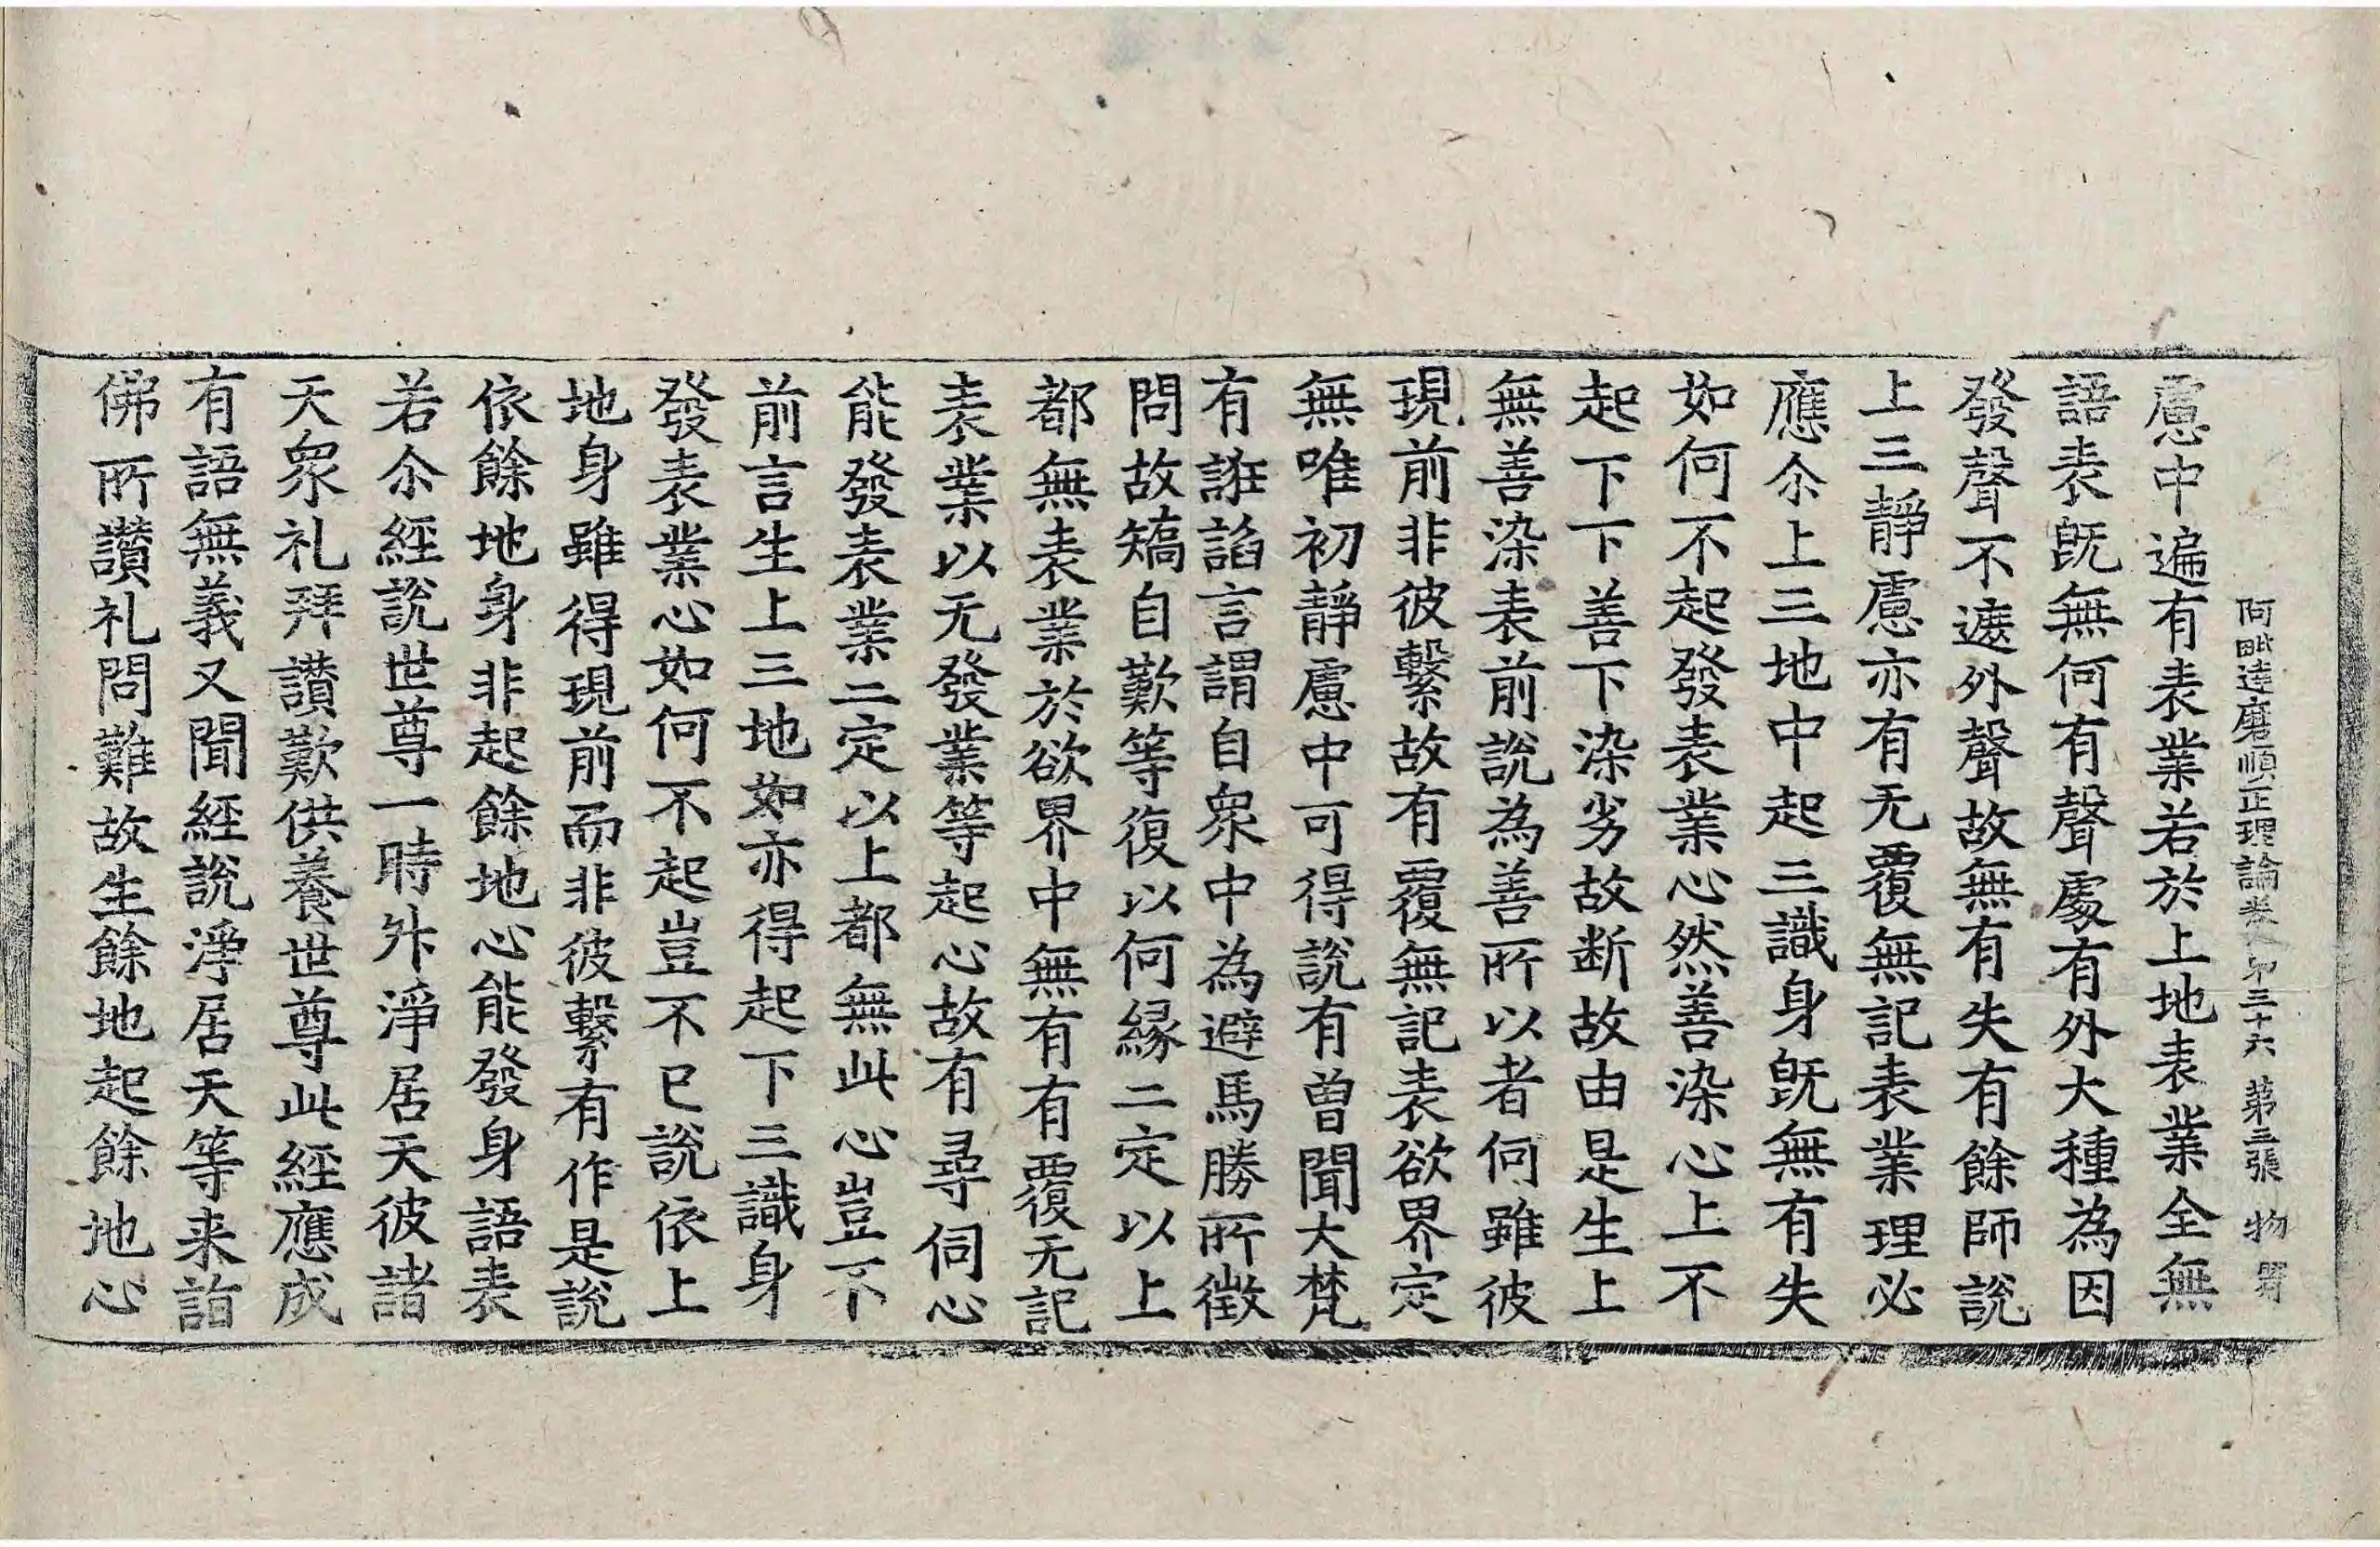 阿毗達磨順正理論卷第三十六 第三張 物
慮中遍有表業若於上地表業全無
語表旣無何有聲處有外大種為因
發聲不遮外聲故無有失有餘師說
上三靜慮亦有无覆無記表業理必
應尒上三地中起三識身旣無有失
如何不起發表業心然善染心上不
起下下善下染劣故断故由是生上
無善染表前說為善所以者何雖彼
現前非彼繫故有覆無記表欲界定
無唯初靜慮中可得說有曽聞大梵
有誑諂言謂自衆中為避馬勝所徵
問故矯自歎等復以何縁二定以上
都無表業於欲界中無有有覆无記
表業以无發業等起心故有尋伺心
能發表業二定以上都無此心豈不
前言生上三地如亦得起下三識身
發表業心如何不起豈不已說依上
地身雖得現前而非彼繫有作是說
依餘地身非起餘地心能發身語表
若尒經說世尊一時外淨居天彼諸
天衆礼拜讃歎供養世尊此經應成
有語無義又聞經說淨居天等来詣
佛所讃礼問難故生餘地起餘地心